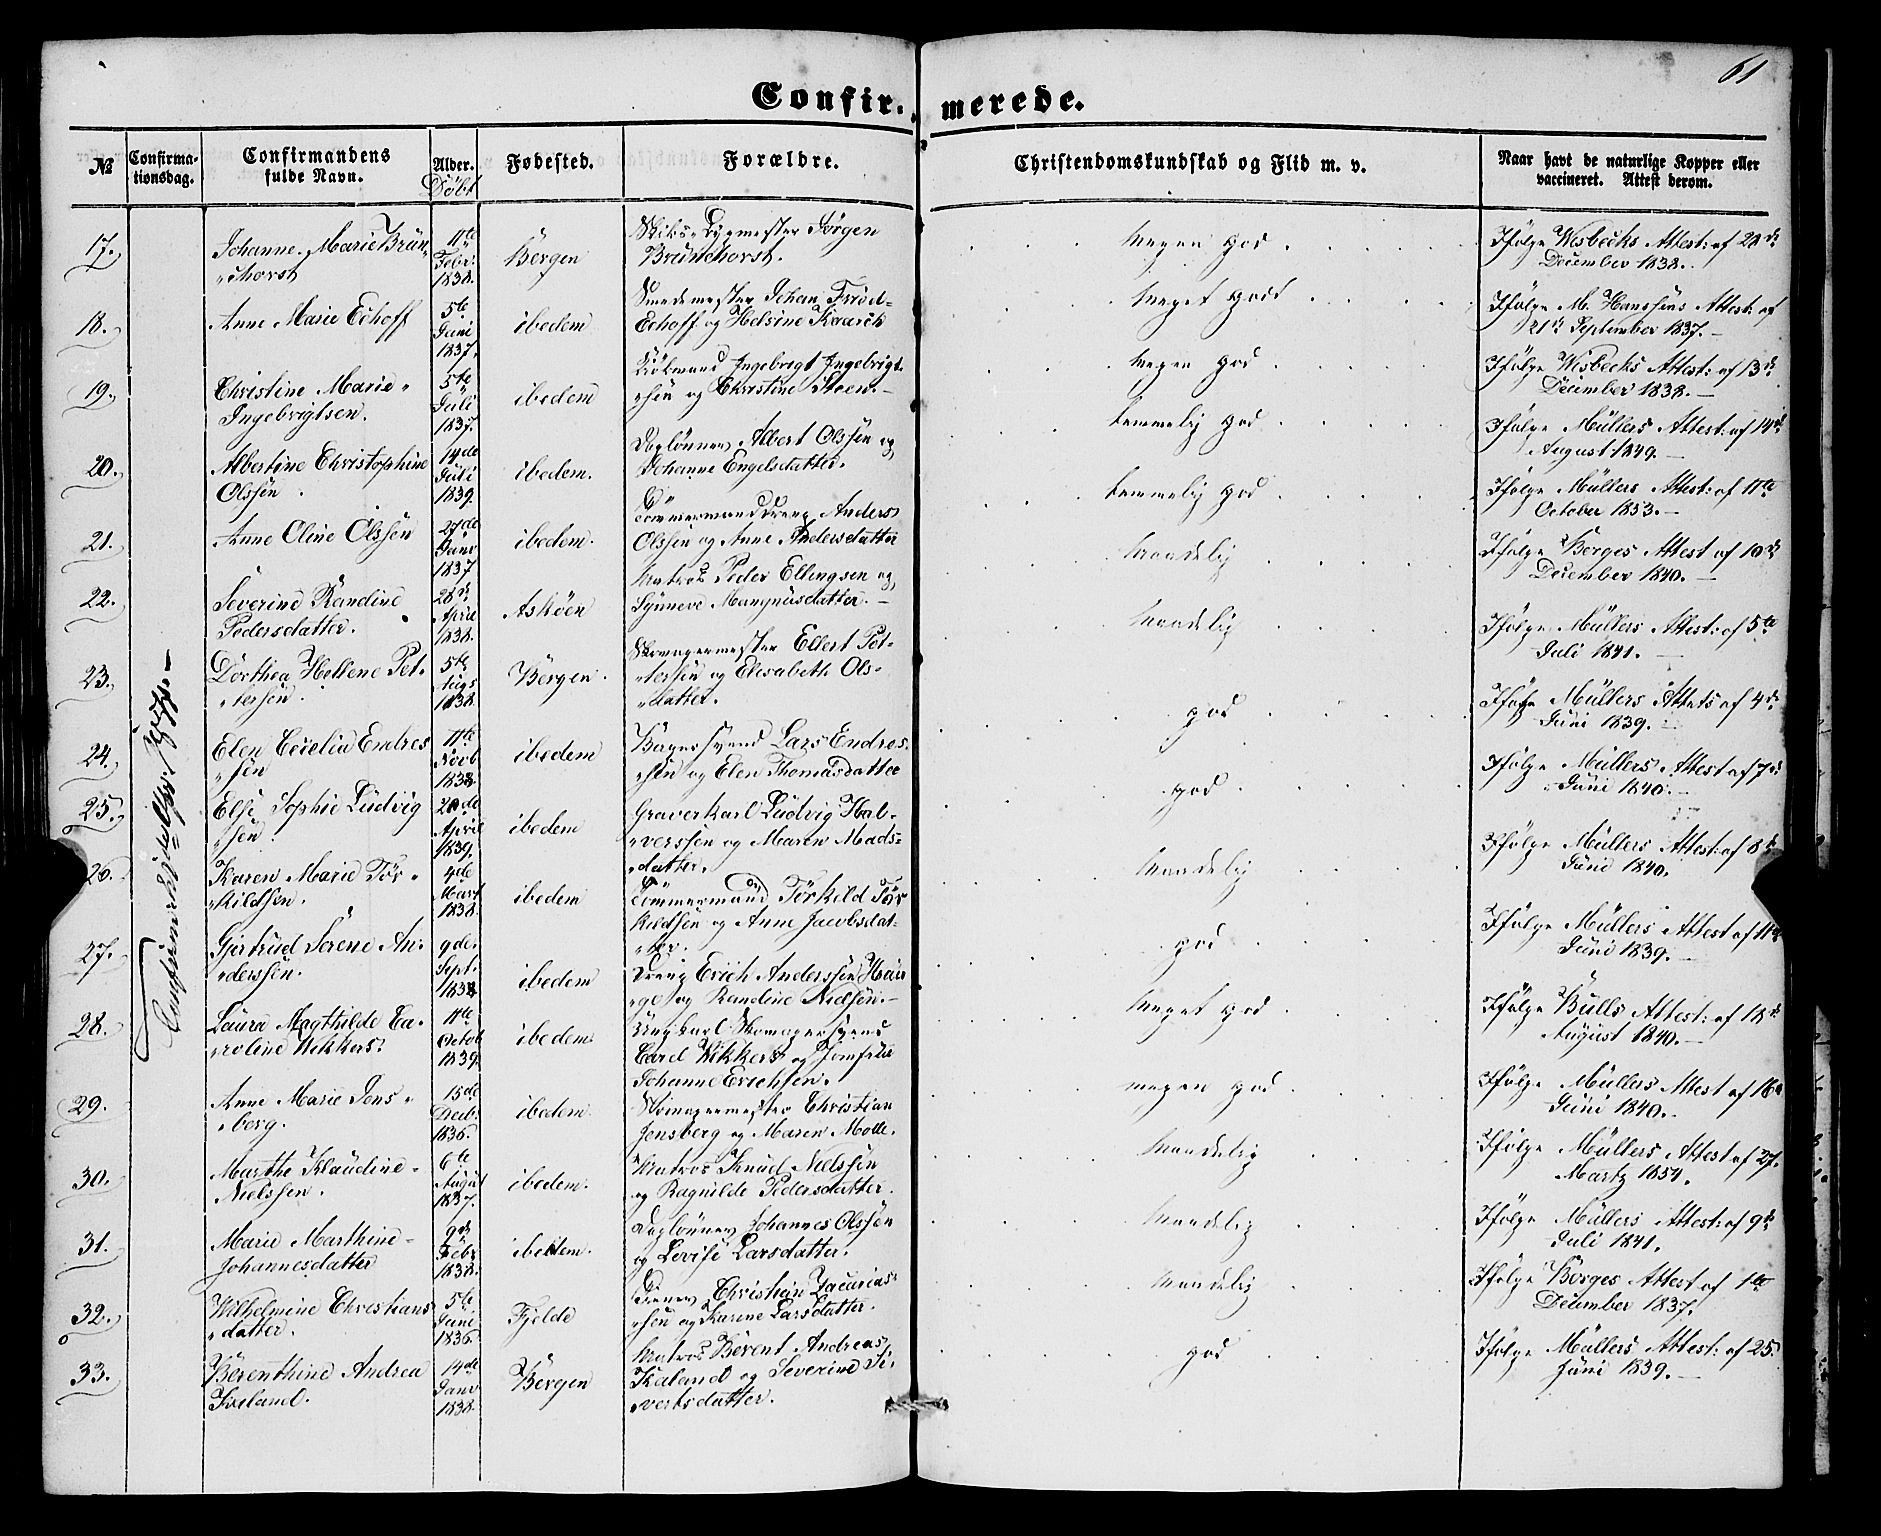 61
Confir- merede.
№
Confirma-
tionsdag.
Confirmandens
fulde Navn.
Alder.
Döbt
Fødested.
Forældre.
Christendomskundskab og Flid m. v.
Naar havt de naturlige Kopper eller
vaccineret. Attest derom.
17.
Johanne Marie Brün-
"chorst
11te
Febr.
1838.
Bergen
Skibs-Bygmester Jørgen
Brünchorst.
megen god
Ifølge Wesbecks Attest: af 22d.
December 1838.
18.
Anne Marie Echoff
5te
Juni
1837.
ibedem
Smedemester Johan Friid-
Echoff og Helsine Kaarth
meget godt
Ifølge M. Hanssens Attest: af
21d. September 1837.
19.
Christine Marie
Ingebrigtsen.
5te
Juli
1837.
ibedem
Ingebrigt Ingebrigt-
"sen og Christine Steen.
megen god
Ifølge Wesbecks Attest: af 13d.
December 1838.
20.
Albertine Christophine
Olssen
14de
Juli
1839.
ibedem.
Daglønner Albert Olssen og
Johanne Engelsdatter.
temmelig god
Ifølge Müllers Attest: af 14d.
August 1849.
21.
Anne Oline Olssen
27de
Janv
1837
ibedem.
Tømmermanddreng Anders
Olssen og Anne Andersdatter
temmelig god
Ifølge Müllers Attest: af 11te
October 1853.
22.
Severine Randine
Pedersdatter.
28d.
April
1838.
Askøen
Matros Peder Ellingsen og
Synneve Mangnusdatter.
maadelig
Ifølge Borges Attest af 10d.
December 1840.
23.
Dorthea Hellene Pet-
"tersen.
5te
Augs
1838.
Bergen.
Skomagermester Ellert Pet-
"tersen og Elisabeth Ols-
"datter.
maadelig
Ifølge Müllers Attest: af 5te
Juli 1841.
24.
Elen Cecelia Endres
"sen
11te
Novb
1838
ibedem
Lars Endres-
"sen og Elen Thomasdatter
god
Ifølge Müllers Attets af 4d.
Juni 1839.
25.
Else Sophie Ludvig
"sen.
20de
April
1839.
ibedem
Graverkarl Ludvig Hal-
"verssen og Maren Mads-
"datter.
god
Ifølge Müllers Attest af 7d.
Juni 1840.
26.
Karen Marie Tor-
"kildsen.
4de
Mart
1838.
ibedem
Tømmermand Torkild Tor
kildsen og Anne Jacobsdat-
"ter.
maadelig
Ifølge Müllers Attest: af 8d.
Juni 1840.
27.
Gjertrud Serene An-
"derssen.
9de.
Sept.
1838
ibedem
Dreng Erich Anderssen Hau
"ge og Randine Nielsen.
god
Ifølge Müllers Attest af 11d.
Juni 1839.
28.
Laura Magthilde Ca-
"roline Wikkers.
11te
Octob
1839.
ibedem
Ungkarl Skomagersvend
Carl Wikkers og Jomfrue
Johanne Erichsen.
meget god
Ifølge Bulls Attest: af 18d.
August 1840.
29.
Anne Marie Jens-
"berg.
15de
Decb.
1836.
ibedem.
Skomagermester Christian
Jensberg og Maren Molle.
megen god
Ifølge Müllers Attest af 16d.
Juni 1840.
30.
Marthe Klaudine
Nielssen.
6te
August
1837.
ibedem.
Matros Knud Nielssen
og Ragnilde Pedersdatter.
maadelig
Ifølge Müllers Attest af 27.
Martz 1854.
31.
Marie Marthine
Johannesdatter
9de
Febr
1838.
ibedem.
Daglønner Johannes Olssen
og Lovise Larsdatter.
maadelig
Ifølge Müllers Attest: af 9d.
Juli 1841.
32.
Wilhelmine Christians
"datter.
5te
Juni
1836.
Fjelde
Christian Zacarias-
"sen og Karine Larsdatter.
maadelig
Ifølge Borges Attest af 1te
December 1837.
33.
Berenthine Andrea
Kaland.
14de
Janv
1838.
Bergen
Matros Berent Andreas
Kaland og Severine Si-
"vertsdatter.
god
Ifølge Müllers Attest: af 25.
Juni 1839.